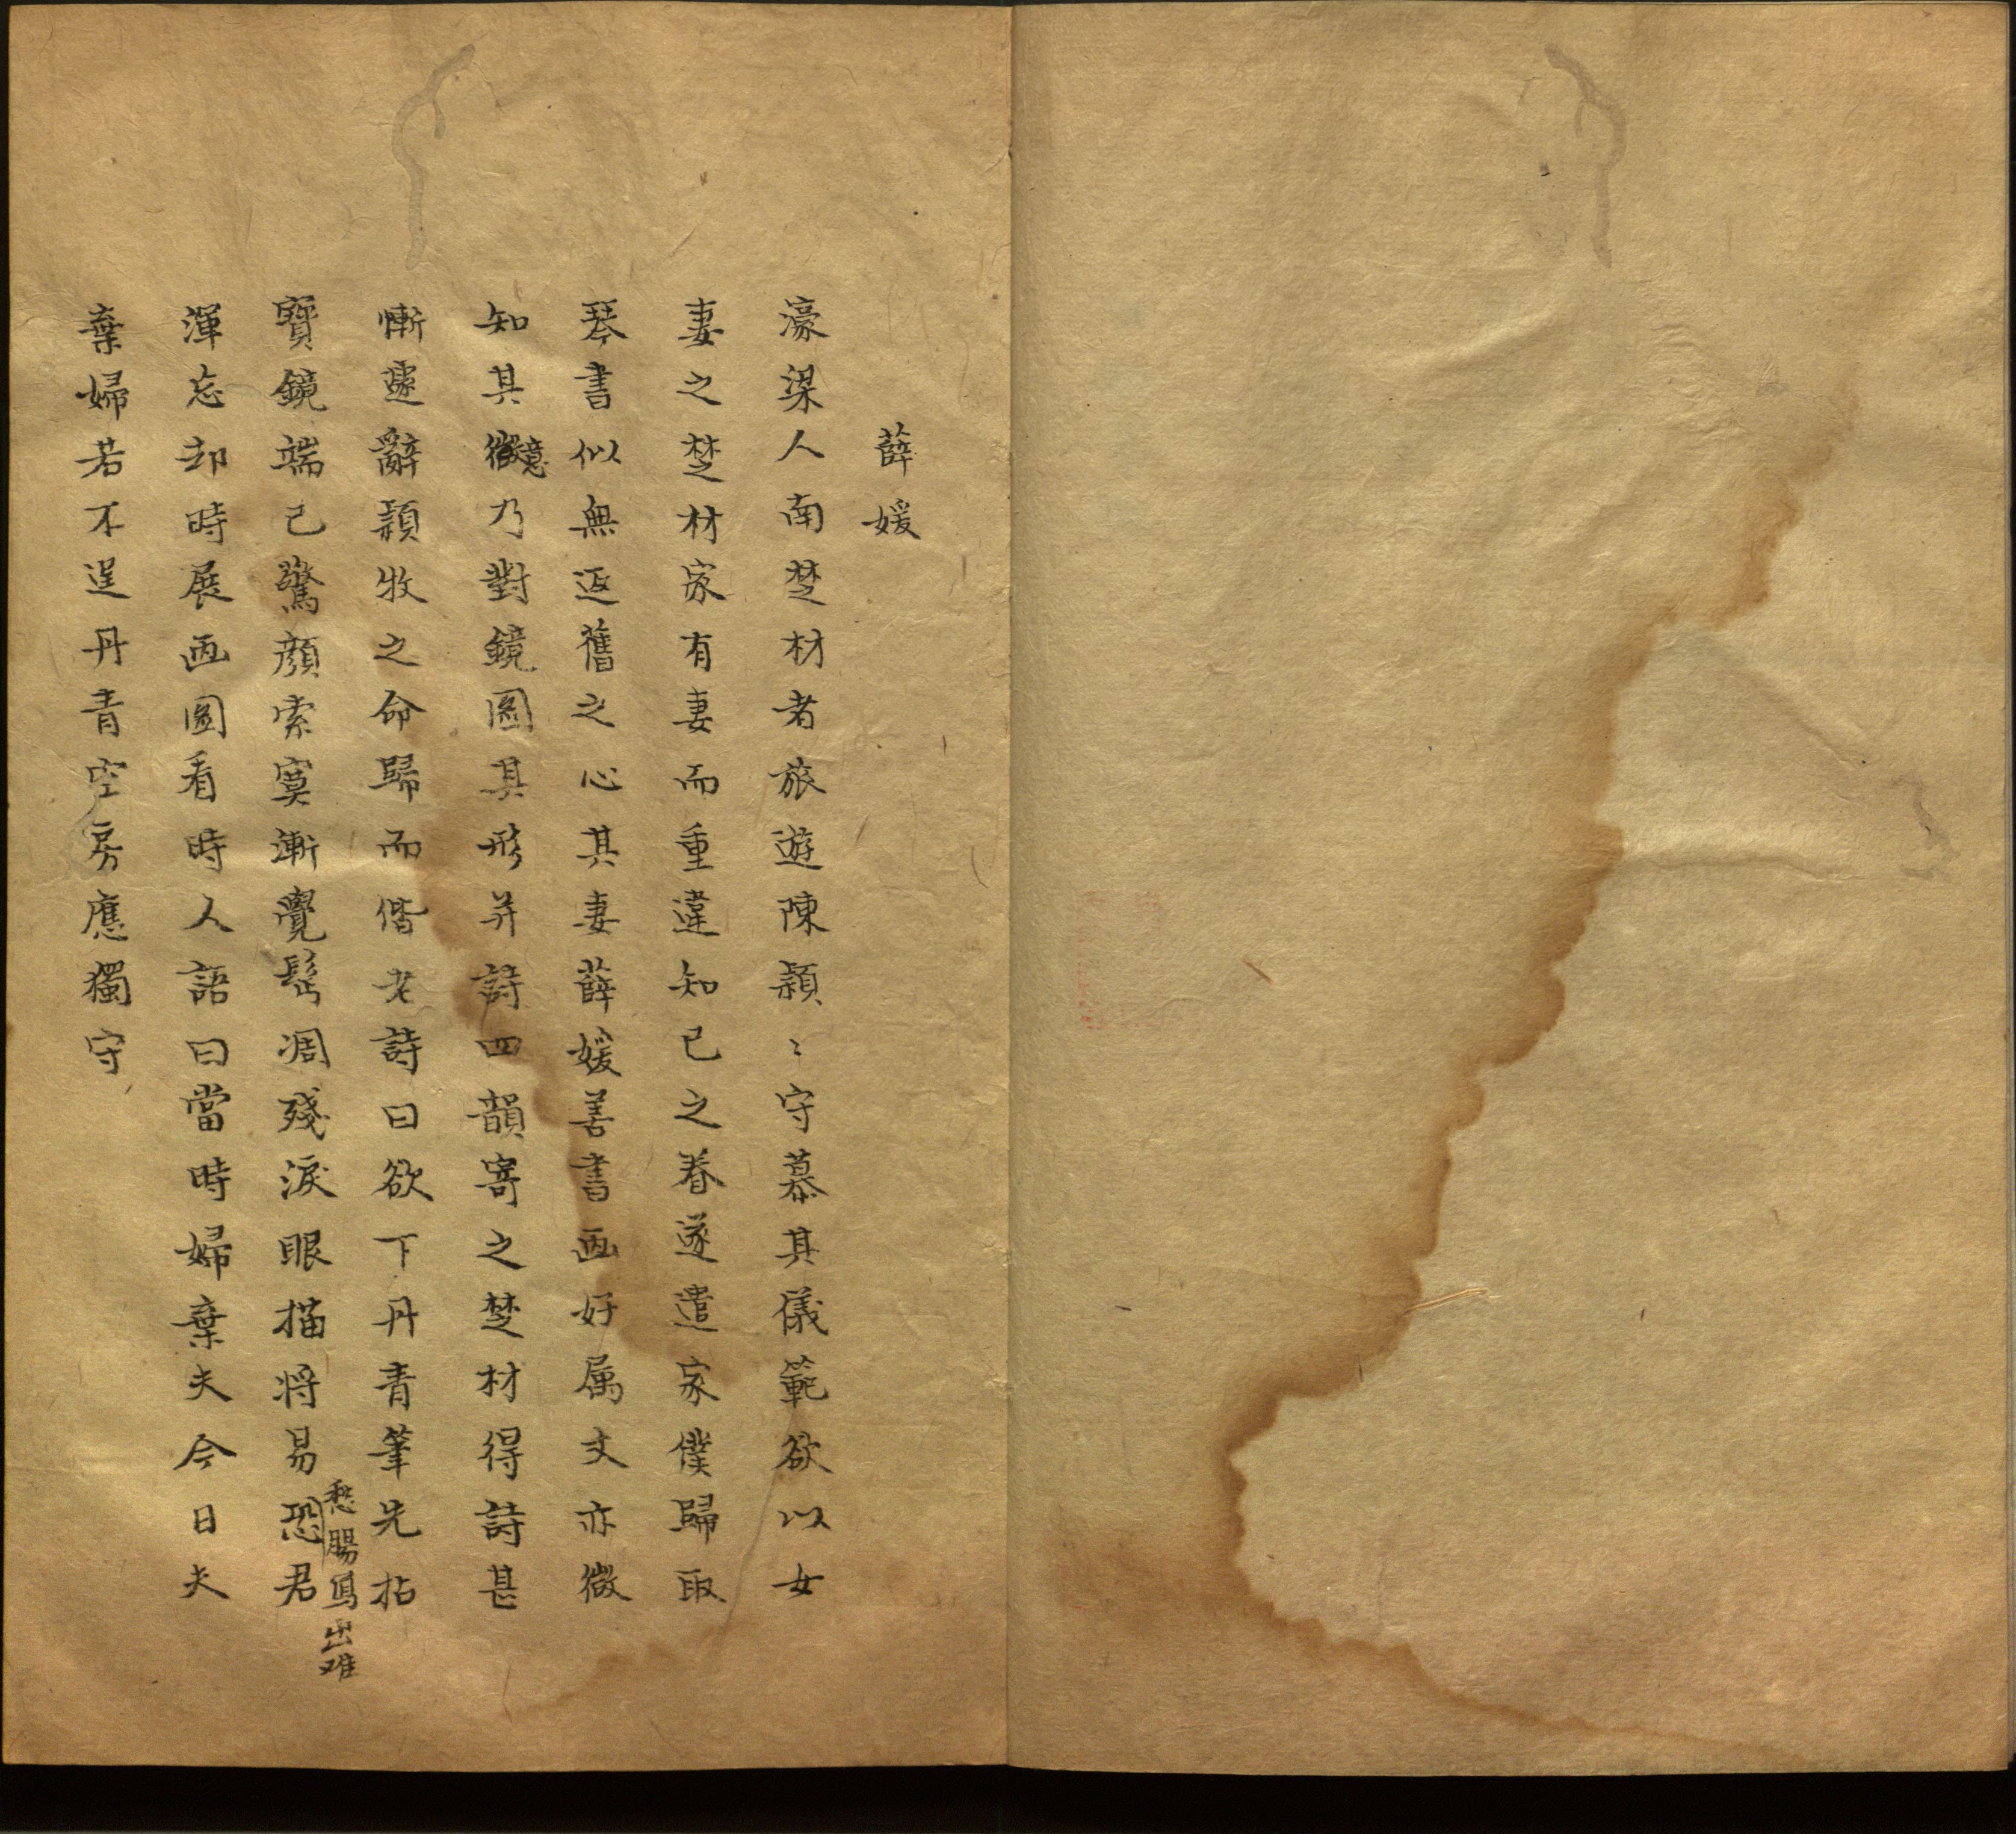 薛媛
濠梁人南楚材者旅遊陳頴〻守慕其儀範欲以女
妻之楚材家有妻而重違知已之眷遂遣家僕歸取
琴書似無返舊之心其妻薛媛善書画好属文亦微
知其微意乃對鏡圖其形并詩四韻寄之楚材得詩甚
慚遽辭頴牧之命歸而偕老詩曰欲下丹青筆先拈
寳鏡端已驚顔索寞漸覺鬂凋殘淚眼描将易愁腸寫出难恐君
渾忘却時展画圖看時人語曰當時婦棄夫今日夫
棄婦若不逞丹青空房應獨守